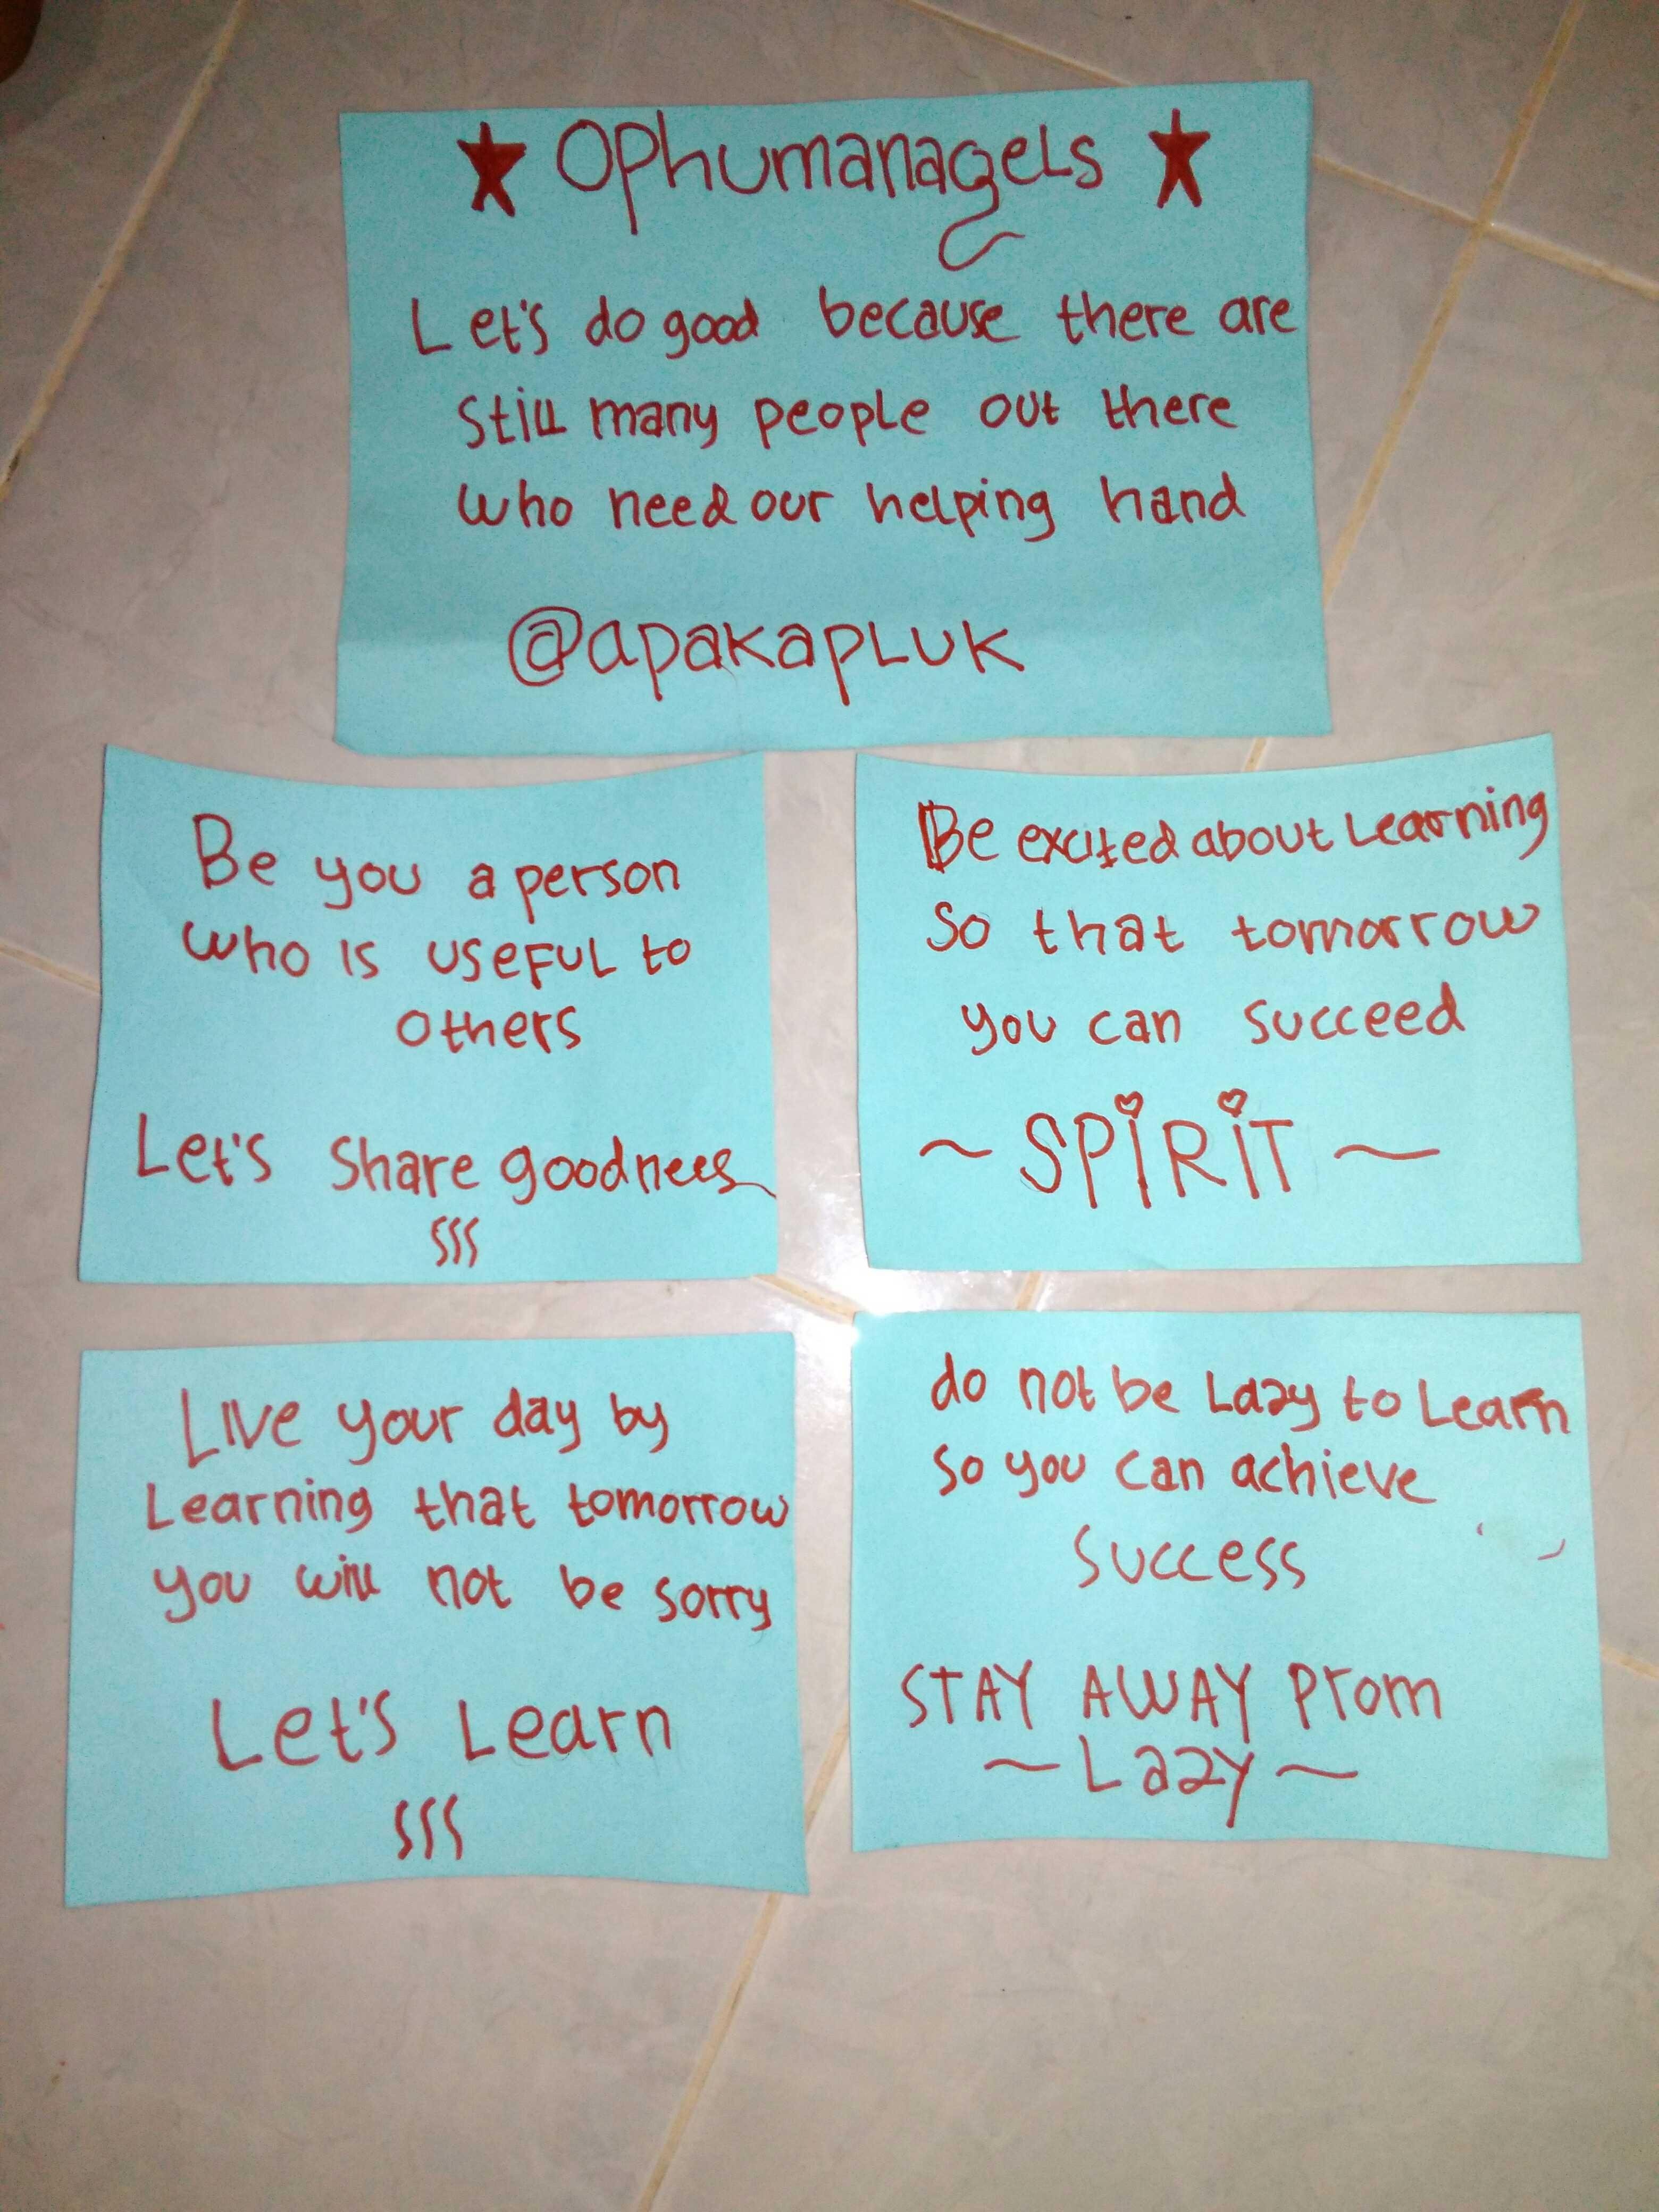 ★ OPhumanageLs ★
Let's do good because there are
still many people out there
who need our helping hand
@apakapLuk
Be you a person
who is useful to
others
Let's share goodness
SSS
Be excited about Learning
So that tomorrow
you can succeed
~ SPiRiT ~
Live your day by
Learning that tomorrow
you will not be sorry
Let's Learn
SSS
do not be Lazy to Learn
so you can achieve
success
STAY AWAY Prom
~ Lazy ~